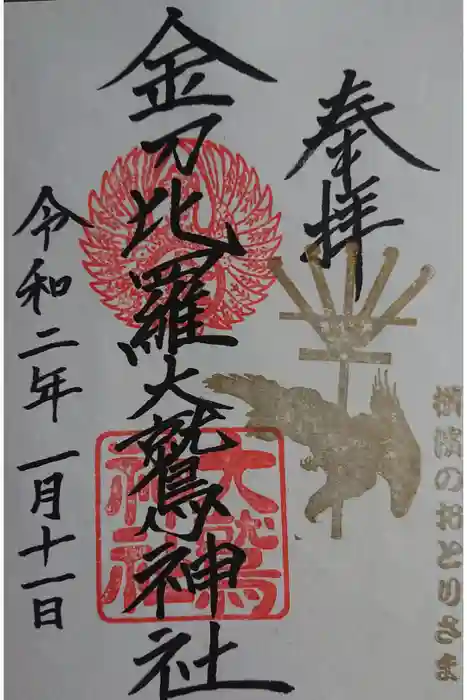 奉拝
横濱のおとりさま
金刀比羅大鷲神社
大鷲
神社
令和二年一月十一日